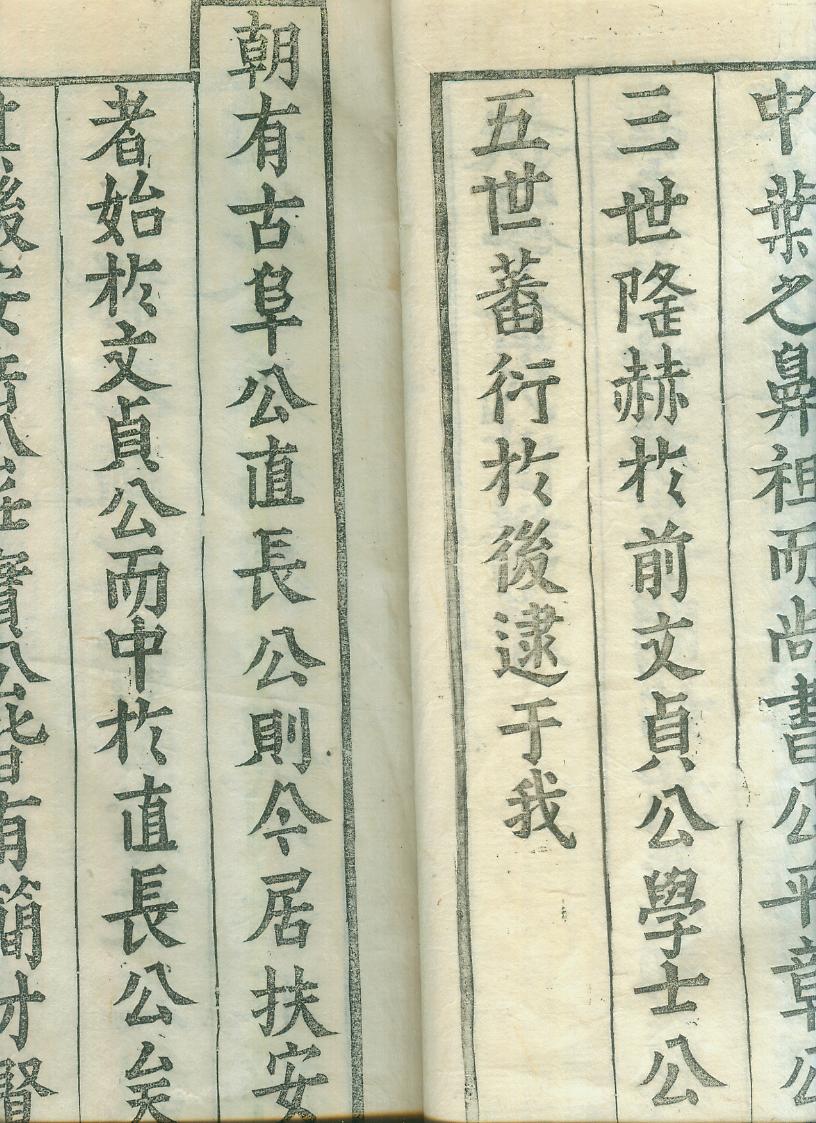 中葉之鼻祖而尚書公平章公
三世隆赫於前文貞公學士公
五世蕃衍於後逮于我
朝有古阜公直長公則今居扶安
者始於文貞公而中於直長公矣
後安 公 實公皆有簡才賢